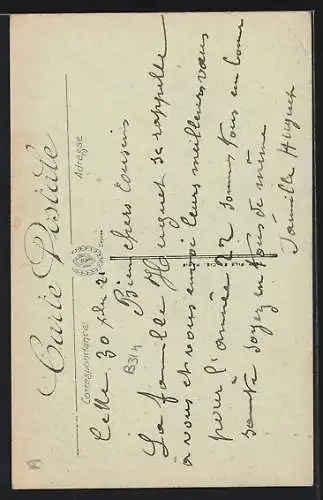 Carte Postale
Correspondance
Adresse
Celle 30 fbre 21
Bien chers Cousins
La famille Huguet se rappelle
à vous et vous envoi leurs meilleurs vœux
pour l'année 22 sommes tous en bonne
santé soyez en tous de même
Famille Huguet
B314